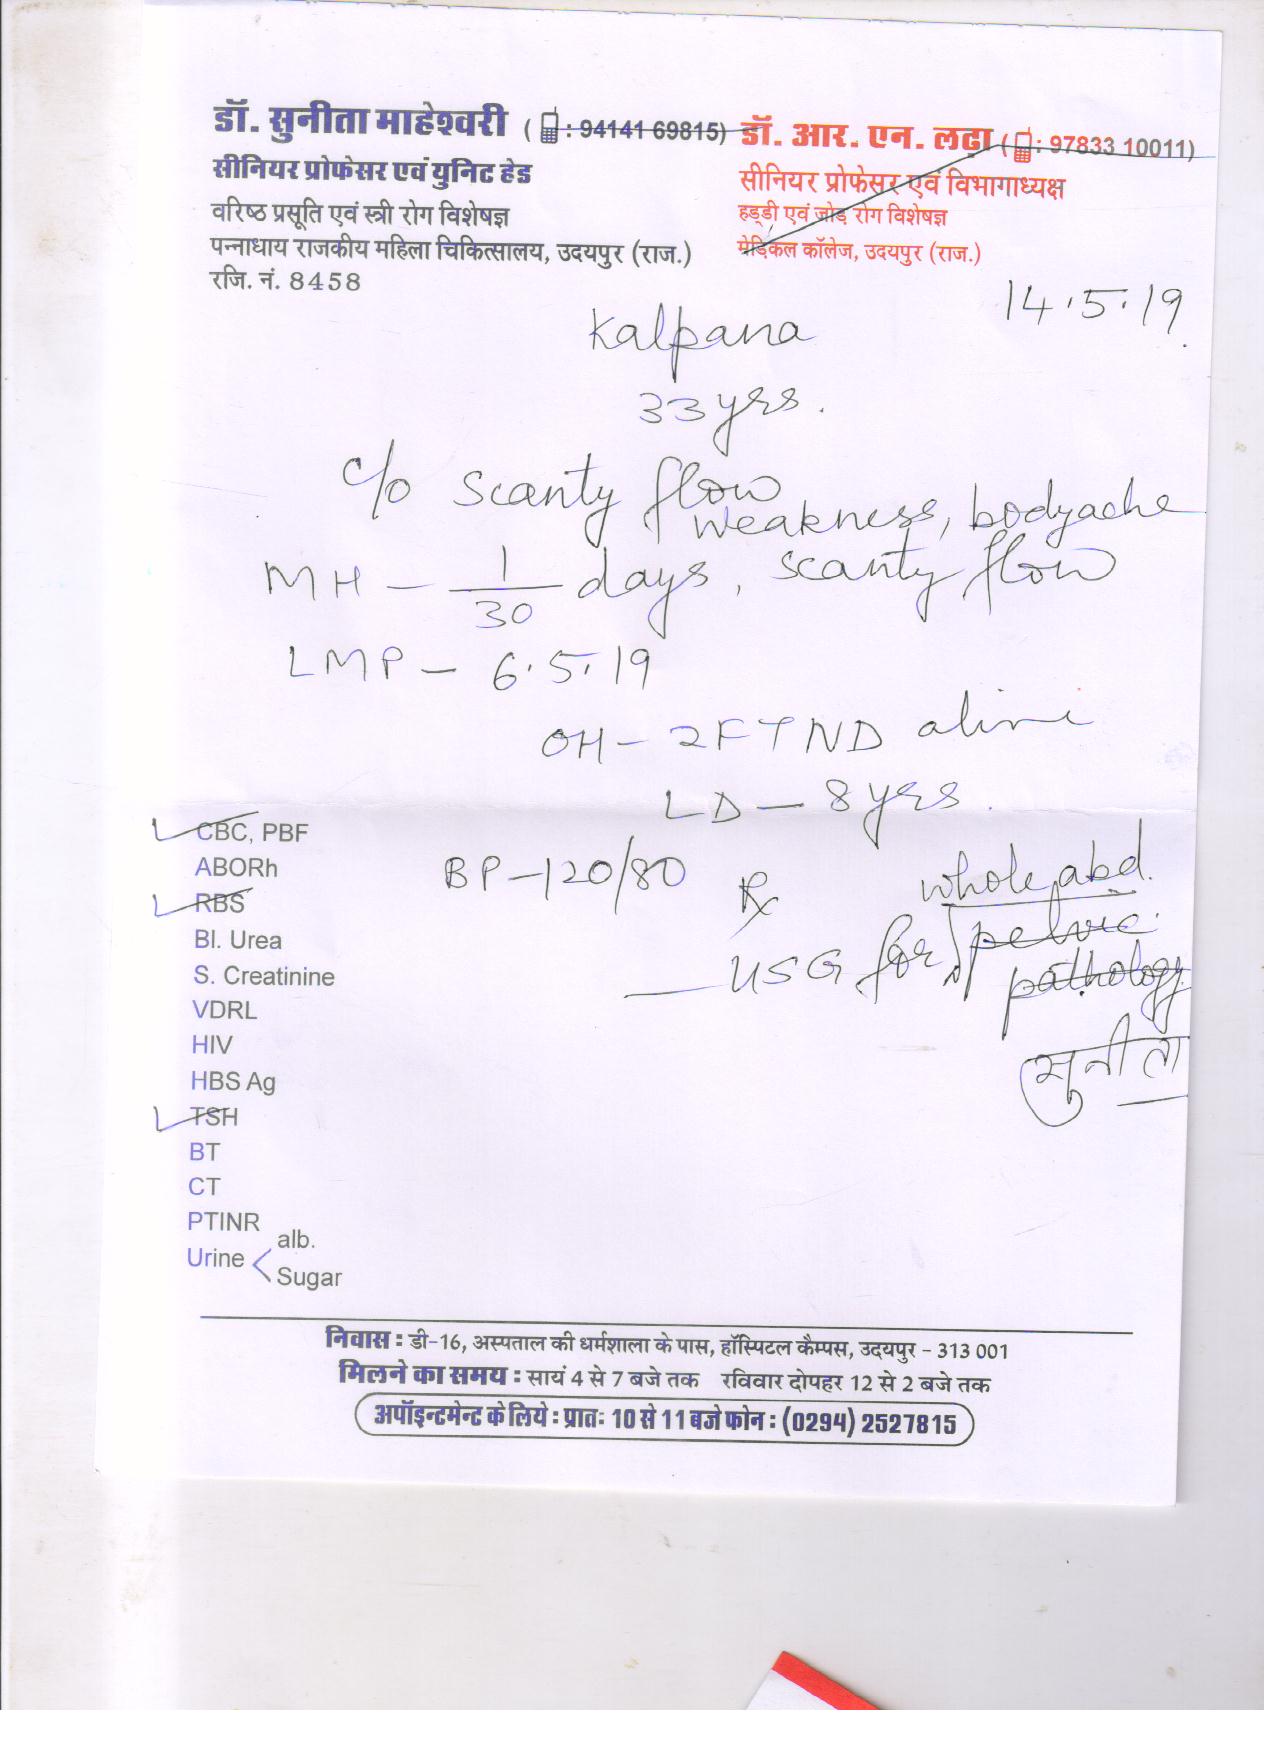 डॉ. सुनीता माहेश्वरी ( : 94141 69815)
सीनियर प्रोफेसर एवं युनिट हेड
वरिष्ठ प्रसूति एवं स्त्री रोग विशेषज्ञ
पन्नाधाय राजकीय महिला चिकित्सालय, उदयपुर (राज.)
रजि. नं. 8458
डॉ. आर. एन. लढ़ा ( : 97833 10011)
सीनियर प्रोफेसर एवं विभागाध्यक्ष
हड्डी एवं जोड़ रोग विशेषज्ञ
मेड़िकल कॉलेज, उदयपुर (राज.)
14.5.19
Kalpana
33 yrs.
c/o scanty flow
weakness, bodyache
MH - 1/30 days, scanty flow
LMP - 6.5.19
OH - 2 FTND alive
LD - 8 yrs.
BP - 120/80
Rx
whole abd.
USG for pelvic
pathology
सुनीता
CBC, PBF
ABORh
RBS
Bl. Urea
S. Creatinine
VDRL
HIV
HBS Ag
TSH
BT
CT
PTINR
Urine < alb.
Sugar
निवास : डी-16, अस्पताल की धर्मशाला के पास, हॉस्पिटल कैम्पस, उदयपुर - 313 001
मिलने का समय : सायं 4 से 7 बजे तक रविवार दोपहर 12 से 2 बजे तक
अपॉइन्टमेन्ट के लिये : प्रातः 10 से 11 बजे फोन : (0294) 2527815